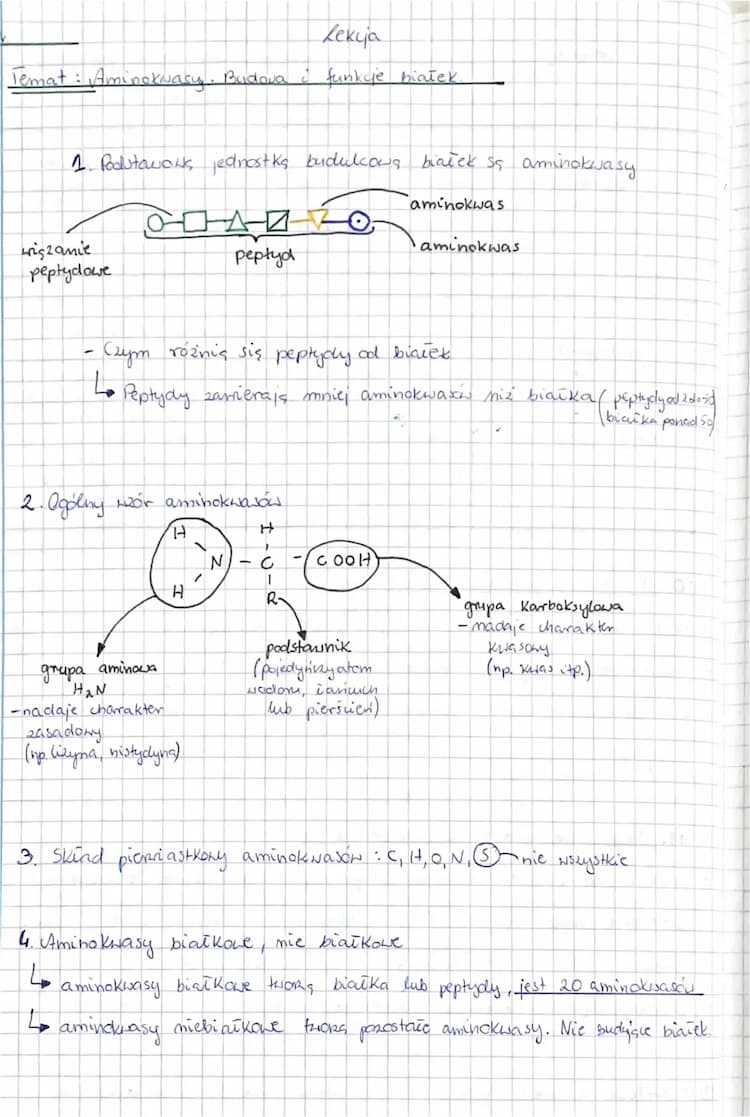 Lekcja
Temat: Aminokwasy. Budowa i funkcje białek
1. Podstawową jednostką budulcową białek są aminokwasy
aminokwas
wiązanie
peptydowe
peptyd
aminokwas
- Czym różnią się peptydy od białek
↳ Peptydy zawierają mniej aminokwasów niż białka (peptydy od 2 do 50
białka ponad 50)
2. Ogólny wzór aminokwasów
H
H
N - C - COOH
H
R
grupa karboksylowa
- nadaje charakter
kwasowy
(np. kwas itp.)
podstawnik
(pojedyńczy atom
wodoru, łańcuch
lub pierścień)
grupa aminowa
H2N
- nadaje charakter
zasadowy
(np. lizyna, histydyna)
3. Skład pierwiastkowy aminokwasów: C, H, O, N, S nie wszystkie
4. Aminokwasy białkowe, nie białkowe
↳ aminokwasy białkowe tworzą białka lub peptydy, jest 20 aminokwasów
↳ aminokwasy niebiałkowe tworzą pozostałe aminokwasy. Nie budujące białek.